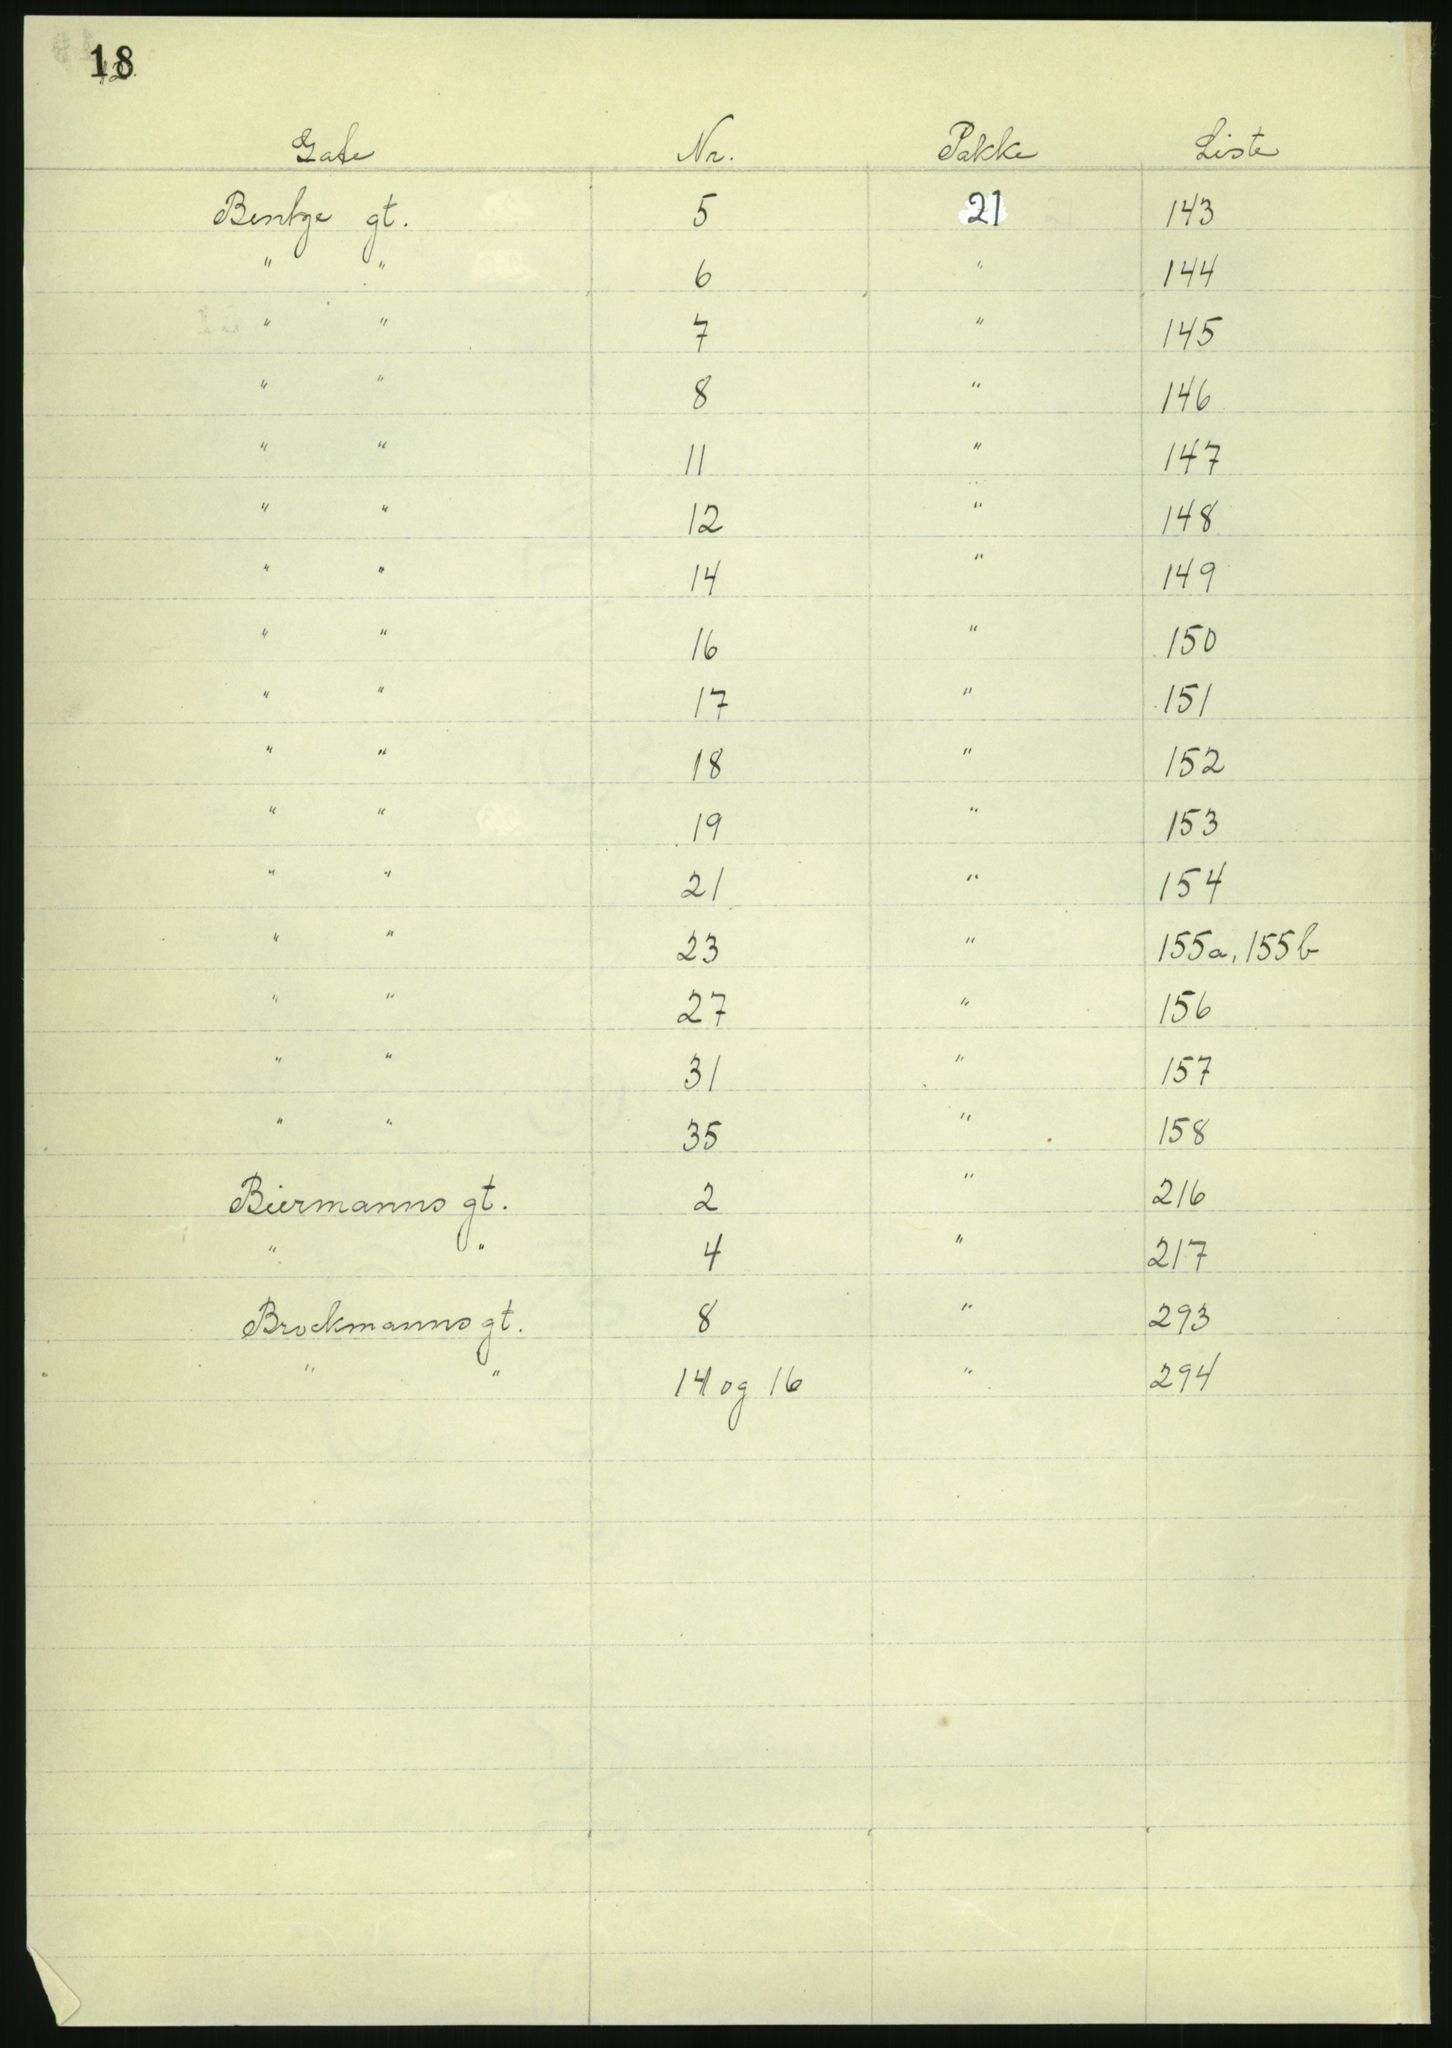 18
Gate Nr. Pakke Liste
Bentze gt. 5 21 143
" " 6 " 144
" " 7 " 145
" " 8 " 146
" " 11 " 147
" " 12 " 148
" " 14 " 149
" " 16 " 150
" " 17 " 151
" " 18 " 152
" " 19 " 153
" " 21 " 154
" " 23 " 155a, 155b
" " 27 " 156
" " 31 " 157
" " 35 " 158
Biermanns gt. 2 " 216
" " 4 " 217
Brockmanns gt. 8 " 293
" " 14 og 16 " 294